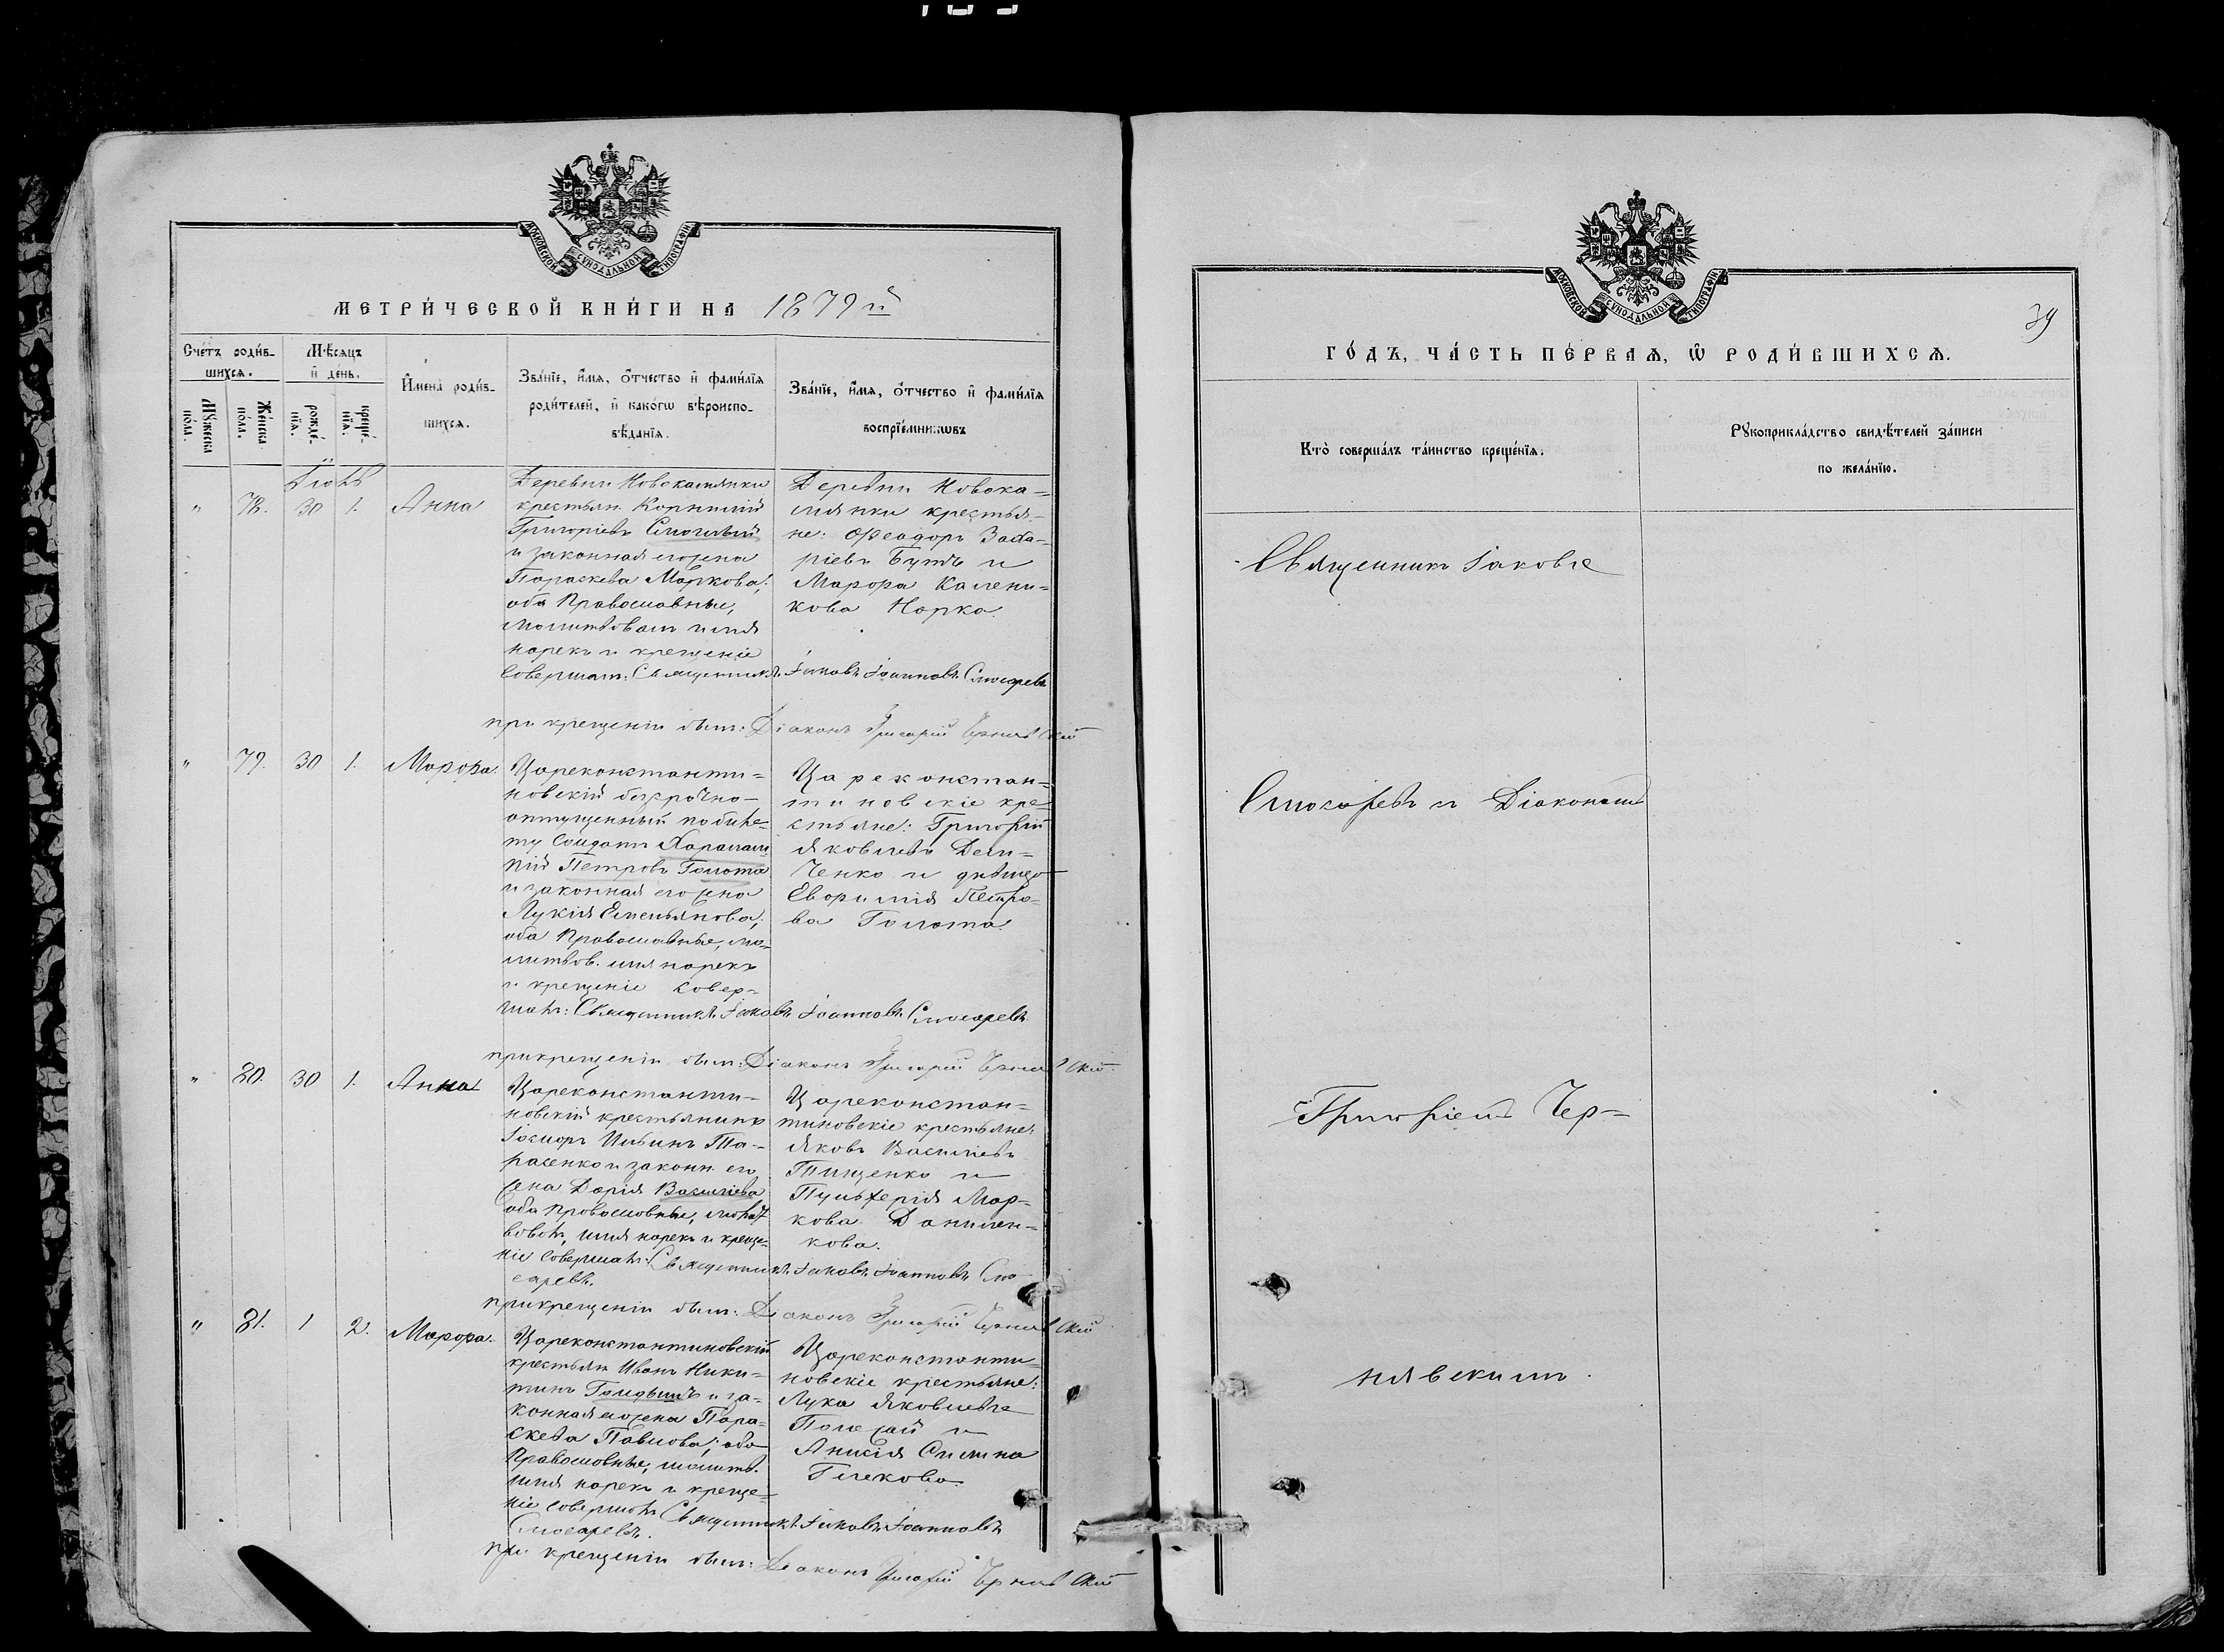 МОСКОВСКОЙ СѴНОДАЛЬНОЙ ТИПОГРАФІИ
МЕТРИ́ЧЕСКОЙ КНИ́ГИ НА 1879й
Сче́тъ роди́в-
шихсѧ.
Мꙋ́жеска
по́ла.
Же́нска
по́ла.
Мѣ́сѧцъ
и҆ де́нь.
рожде́-
нїѧ.
креще́-
нїѧ.
И҆мена̀ роди́в-
шихсѧ.
Зва́нїе, и҆́мѧ, ѻ҆́тчество и҆ фами́лїѧ
роди́телей, и҆ како́гѡ вѣроиспо-
вѣ́данїѧ.
Зва́нїе, и҆́мѧ, ѻ҆́тчество и҆ фами́лїѧ
воспрїе́мникѡвъ
" 78. 30 1. Анна
Деревни Новокамянки
крестьян. Корнилій
Григоріевъ
и законная его жена
Параскева Маркова;
оба Православные,
молитвовалъ имя
нарекъ и крещеніе
совершалъ: Священникъ Іаковъ Іоанновъ Слюсаревъ
Деревни Новока-
мянки крестья-
не: Ѳеодоръ Заха-
ріевъ Бутъ и
Марѳа Калени-
кова Норка.
при крещеніи былъ: Діаконъ Григорій Чернявскій
" 79. 30 1. Марѳа.
Цареконстанти-
новскій безсрочно-
отпущенный по биле-
ту солдатъ Харлам-
пій Петровъ Голота
и законная его жена
Лукія Емельянова;
оба Православные, мо-
литвов. имя нарекъ
и крещеніе совер-
шалъ: Священникъ Іаковъ Іоанновъ Слюсаревъ
Цареконстан-
тиновскіе кре-
стьяне: Григорій
Яковлевъ Дем-
ченко и дѣвица
Евѳимія Петро-
ва Голота.
при крещеніи былъ: Діаконъ Григорій Чернявскій
" 80. 30 1. Анна
Цареконстанти-
новскій крестьянинъ
Іосифъ Ильинъ Та-
расенко и законн. его
жена Дарія Василіева
оба Православные, молит
вовалъ, имя нарекъ и креще-
ніе совершалъ: Священникъ Іаковъ Іоанновъ Слю
саревъ.
Цареконстан-
тиновскіе крестьяне:
Яковъ Василіевъ
Тищенко и
Пульхерія Мар-
кова Данилен-
кова.
при крещеніи былъ: Діаконъ Григорій Чернявскій
" 81. 1 2. Марѳа.
Цареконстантиновскій
крестьян. Иванъ Ники-
тинъ и за-
конная его жена Пара-
скева Павлова; оба
Православные; молитв.
имя нарекъ и креще-
ніе совершалъ Священникъ Іаковъ Іоанновъ
Слюсаревъ.
Цареконстанти-
новскіе крестьяне:
Лука Яковлевъ
Полежай и
Анисія Силина
при крещеніи былъ: Діаконъ Григорій Чернявскій
МОСКОВСКОЙ СѴНОДАЛЬНОЙ ТИПОГРАФІИ
39
ГО́ДЪ, ЧА́СТЬ ПЕ́РВАѦ, Ѡ҆ РОДИ́ВШИХСѦ.
Кто̀ соверша́лъ та́инство креще́нїѧ.
Рꙋкоприкла́дство свидѣ́телей за́писи
по жела́нїю.
Священникъ Іаковъ
Слюсаревъ съ Діакономъ
Григоріемъ Чер-
нявскимъ.